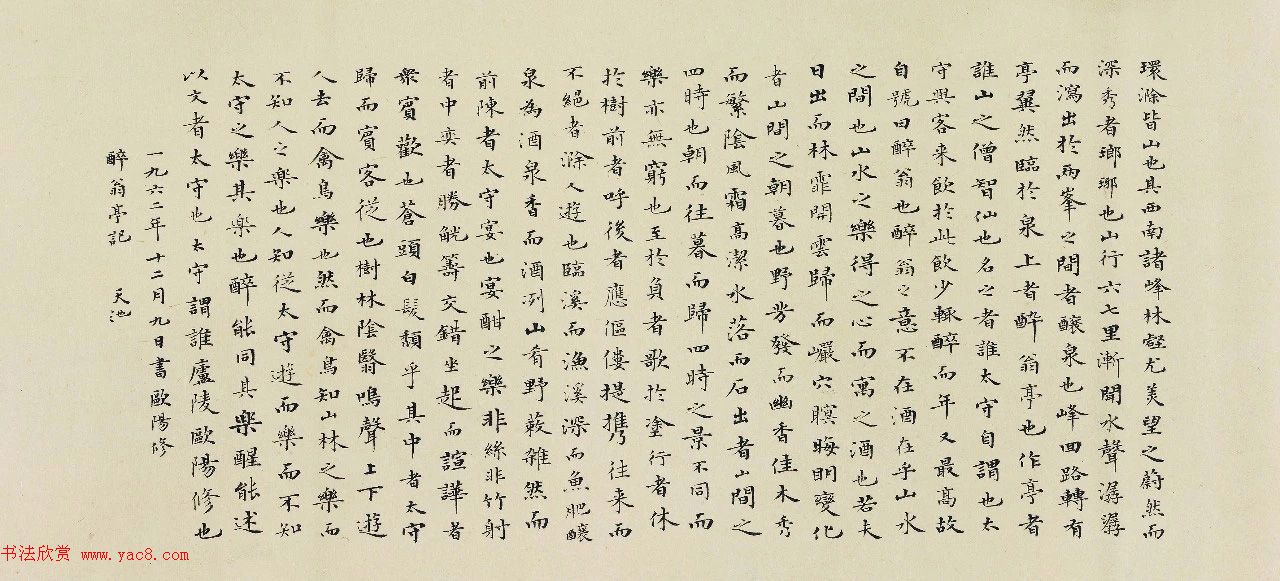 環滁皆山也其西南諸峰林壑尤美望之蔚然而
深秀者瑯琊也山行六七里漸聞水聲潺潺
而瀉出於兩峯之間者釀泉也峰回路轉有
亭翼然臨於泉上者醉翁亭也作亭者
誰山之僧智仙也名之者誰太守自謂也太
守與客来飲於此飲少輒醉而年又最高故
自號曰醉翁也醉翁之意不在酒在乎山水
之間也山水之樂得之心而寓之酒也若夫
日出而林霏開雲歸而巖穴暝晦明變化
者山間之朝暮也野芳發而幽香佳木秀
而繁陰風霜高潔水落而石出者山間之
四時也朝而往暮而歸四時之景不同而
樂亦無窮也至於負者歌於塗行者休
於樹前者呼後者應傴僂提携往来而
不絕者滁人遊也臨溪而漁溪深而魚肥釀
泉為酒泉香而酒冽山肴野蔌雜然而
前陳者太守宴也宴酣之樂非絲非竹射
者中奕者勝觥籌交錯坐起而諠譁者
衆賓歡也蒼頭白髮頹乎其中者太守
歸而賓客從也樹林陰翳鳴聲上下遊
人去而禽鳥樂也然而禽鳥知山林之樂而
不知人之樂也人知從太守遊而樂而不知
太守之樂其樂也醉能同其樂醒能述
以文者太守也太守謂誰廬陵歐陽修也
一九六二年十二月九日書歐陽修
醉翁亭記 天池
书法欣赏 www.yac8.com